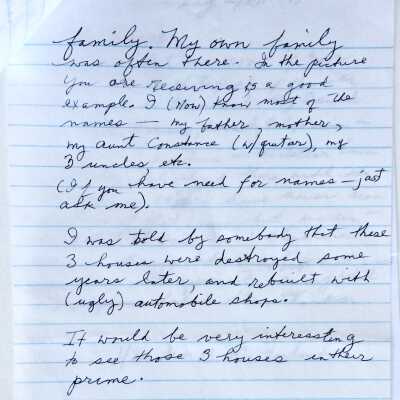 family. My own family
was often there. In the picture
you are receiving is a good
example. I (now) know most of the
names — my father, mother,
my aunt Constance (w/guitar), my
3 uncles etc.
(If you have need for names — just
ask me).
I was told by somebody that these
3 houses were destroyed some
years later, and rebuilt with
(ugly) automobile shops.
It would be very interessting
to see those 3 houses in their
prime.